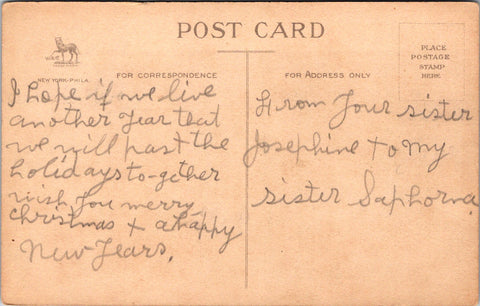 POST CARD
NEW YORK-PHILA.
FOR CORRESPONDENCE
FOR ADDRESS ONLY
PLACE
POSTAGE
STAMP
HERE.
I hope if we live
another year that
we will past the
holidays to-gether
wish you merry
christmas + a happy
New Years.
From your sister
Josephine to my
sister Saphorna